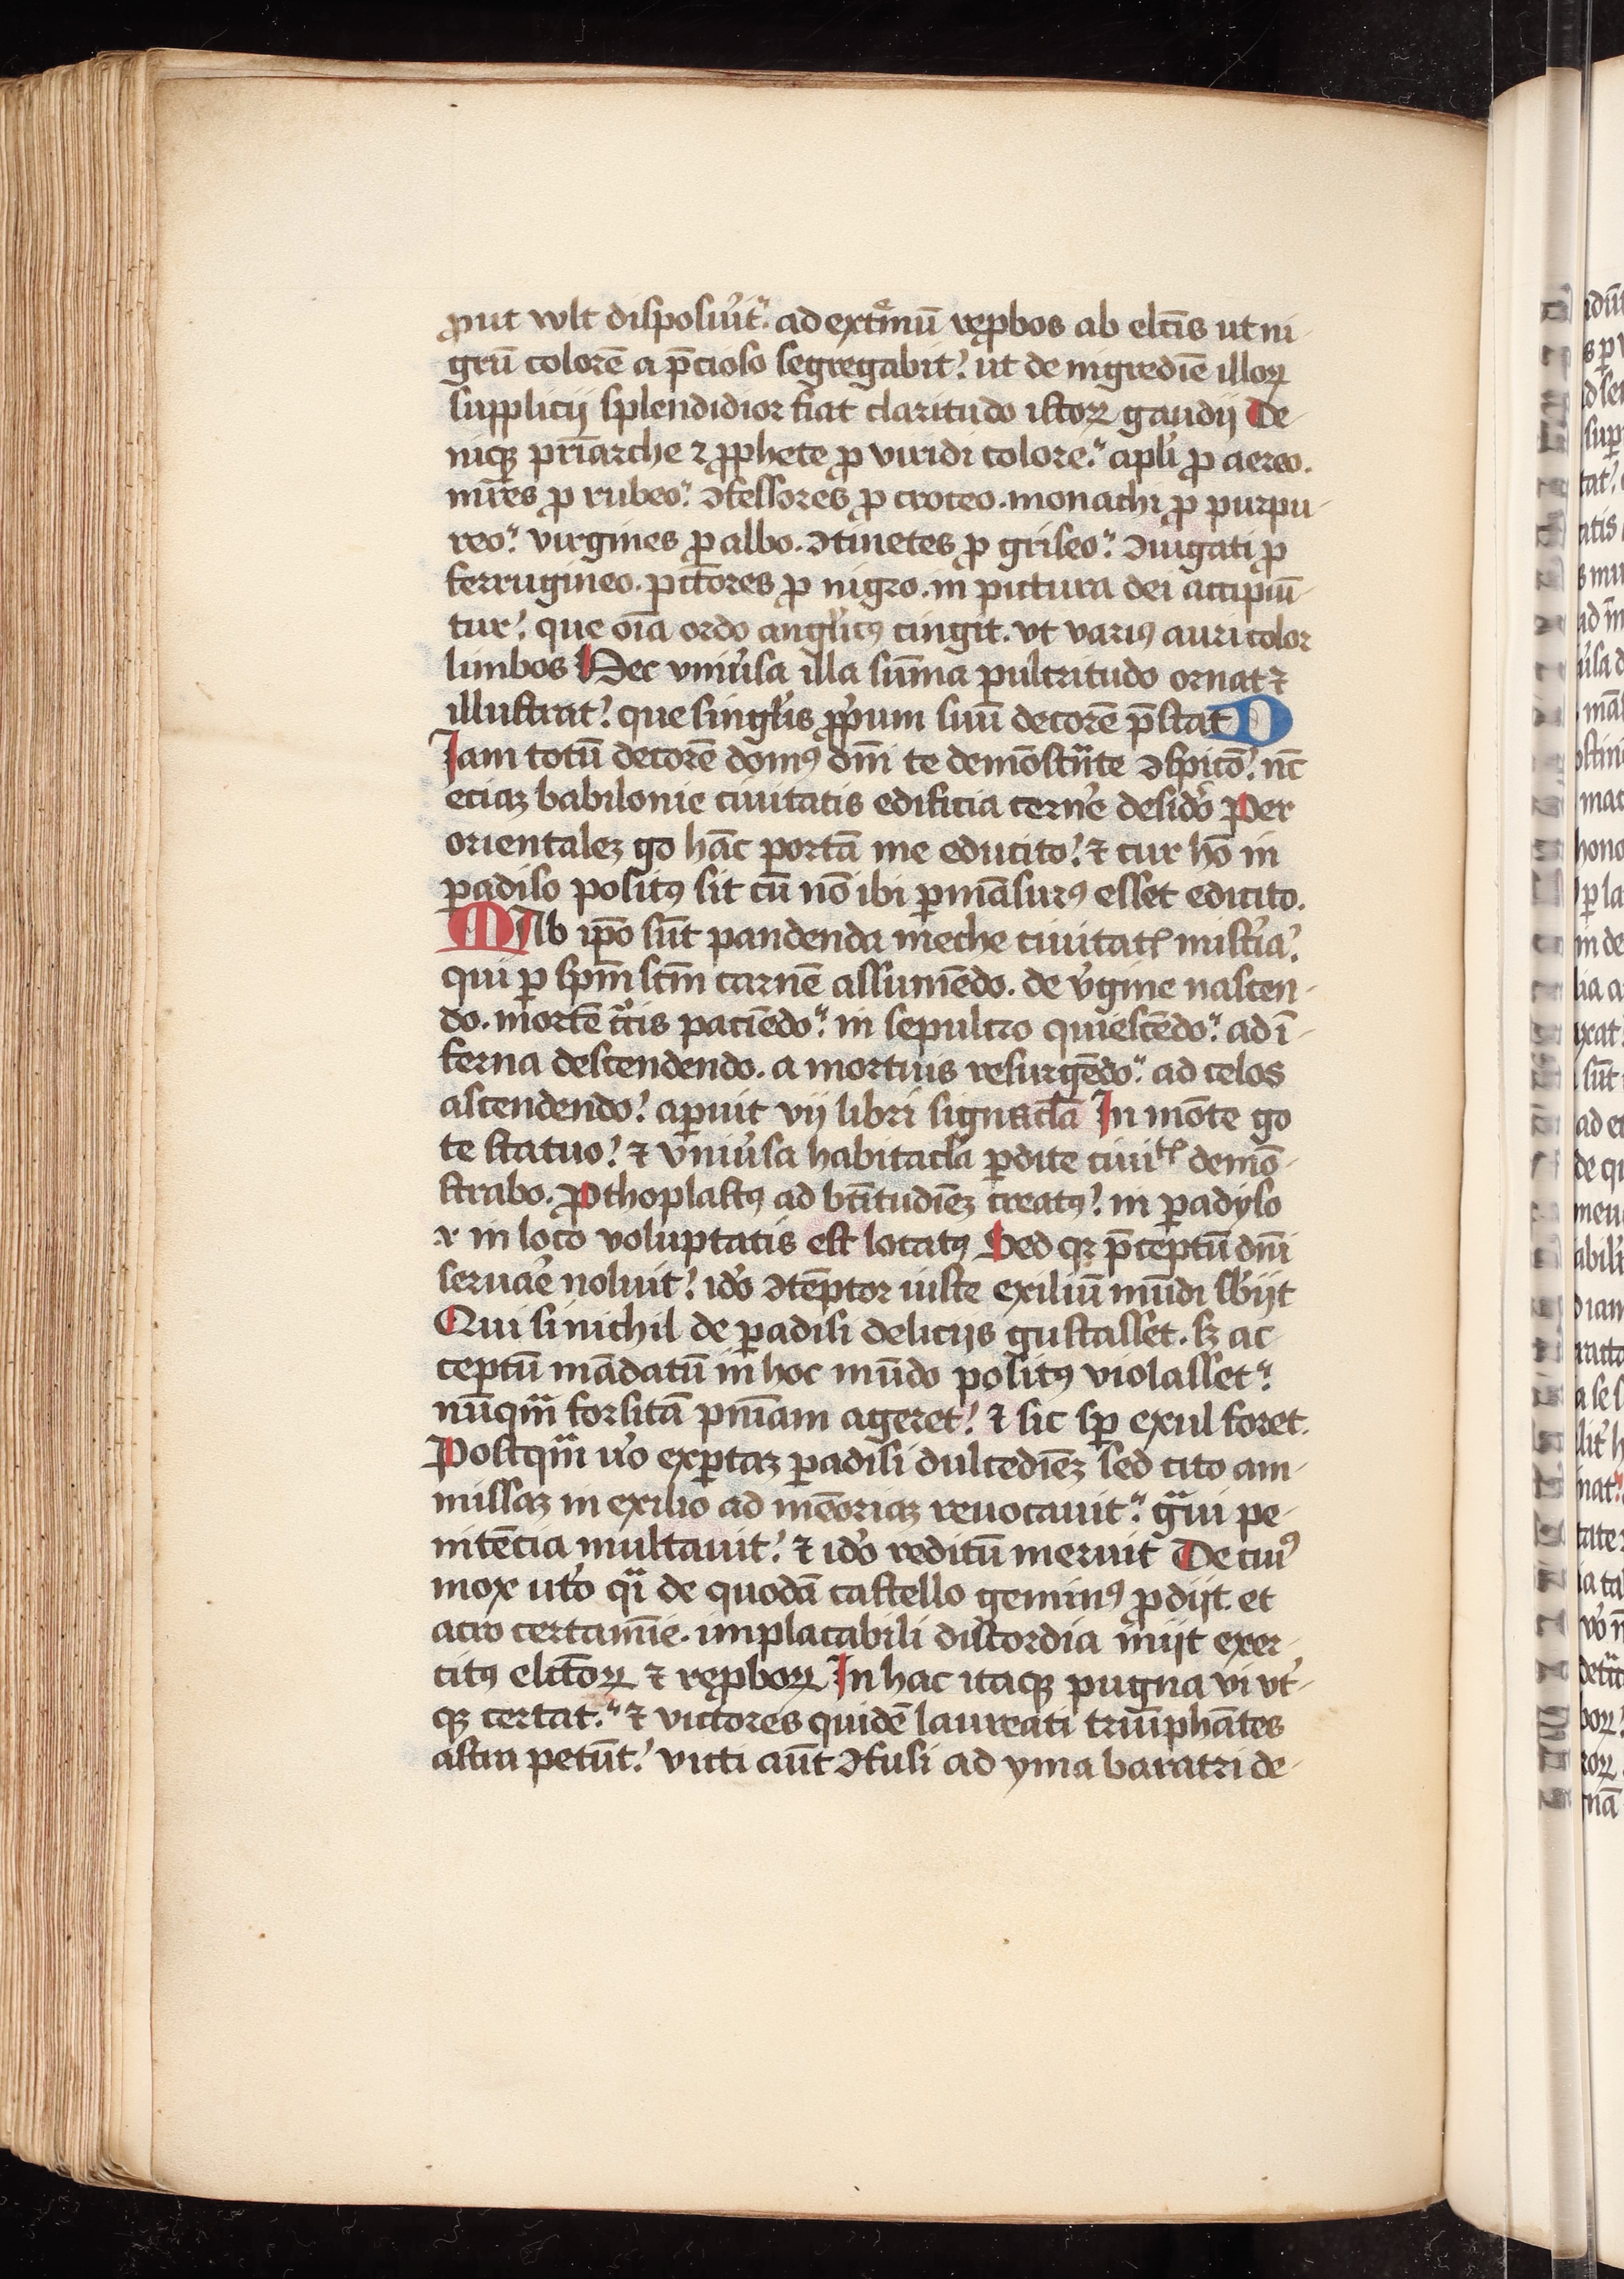 ꝓut wlt disposuĩt. ad extͤmũ rep̱bos ab elc̃is ut ni-
grũ colorẽ a p̃cioso segregabit? ut de nigrediẽ illoꝝ
supplicij splendidior fiat claritudo istoꝝ gaudij De
nicꝙ pri̅arche ⁊ ꝓphete ꝓ viridi colore. apl̓i ꝓ aereo.
mr̃es ꝓ rubeo. ꝯfessores ꝓ croceo. monachi ꝓ purpu-
reo. virgines ꝓ albo. ꝯtinẽtes ꝓ griseo. ꝯiugati ꝓ
ferrugineo. pcc̃ores ꝓ nigro. in pictura dei accipiũ-
tur? que oĩa ordo angl̓icꝰ cingit. vt variꝰ auri color
limbos Hec vniũsa illa sũma pulcritudo ornat ⁊
illustrat? que singl̓is ꝓp̓um suũ decorẽ p̃stat D
Iam totũ decorẽ domꝰ dñi te demõstrãte ꝯspicõ? nc̃
eciaꝫ babilonie ciuitatis edificia cern̓e desid̓o Per
orientaleꝫ go hãc portã me educito? ⁊ cur hõ in
ꝑadiso positꝰ sit cũ nõ ibi ꝑmãsurꝰ esset edicito.
M Ab ip̃o sũt pandenda meche ciuitatꝭ mist̓ia?
qui ꝑ sp̃m sc̃m carnẽ assumẽdo. de v̓gine nascen-
do. mortẽ cͬcis paciẽdo. in sepulcro quiescẽdo. ad ĩ-
ferna descendendo. a mortuis resurgẽdo. ad celos
ascendendo? aꝑuit vij libri signacl̓a In mõte go
te statuo? ⁊ vniu̓sa habitacl̓a ꝑdite ciuitꝭ demõ-
strabo. Pthoplastꝰ ad bt̃itudiẽꝫ creatꝰ? in ꝑadyso
⁊ in loco voluptatis est locatꝰ Sed qꝛ p̃ceptũ dñi
seruae̓ noluit? id̓o ꝯtẽptor iuste exiliũ mũdi sb̓ijt
Qui si nichil de ꝑadisi delicijs gustasset. sꝫ ac
ceptũ mãdatũ in hoc mũdo positꝰ violasset?
nũqͣm forsitã pñiam ageret? ⁊ sic sꝑ exul foret.
Postqͣm u̓o exꝑtaꝫ ꝑadisi dulcediẽꝫ sed cito am-
missaꝫ in exilio ad mẽoriaꝫ reuocauit. gͣui pe-
nitẽcia multauit? ⁊ id̓o reditũ meruit De cuiꝰ
mox ut̓o qͣi de quodã castello geminꝰ ꝓdijt. et
acro certamĩe. implacabili discordia iniit exer-
citꝰ elc̃toꝝ ⁊ reꝓboꝝ In hac itaqꝫ pugna vi vt̓-
qꝫ certat. ⁊ victores quidẽ laureati triũphãtes
astra petũt? victi aũt ꝯfusi ad yma baratri de-